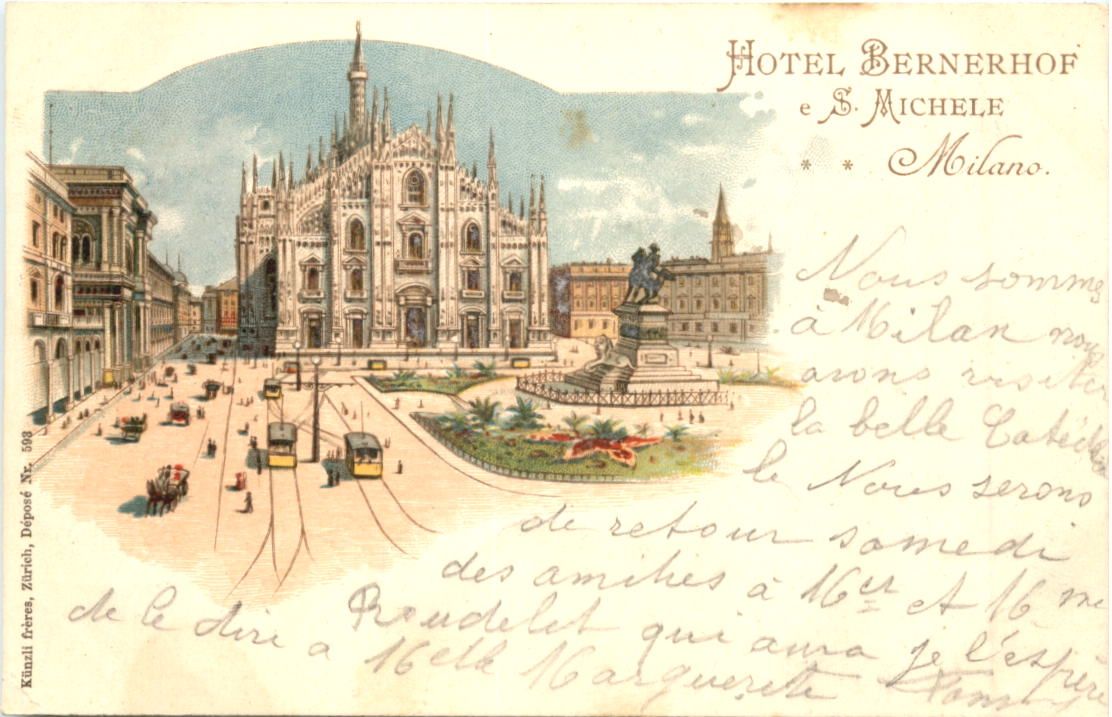 HOTEL BERNERHOF
e S. MICHELE
* * Milano.
Nous sommes
à Milan nous
avons visiter
la belle Catédra
le Nous serons
de retour samedi
des amitiés à Mer et Mme
Roudelet qui aura je l'espère
de le dire a Melle Marguerete
Künzli frères, Zürich, Déposé Nr. 593